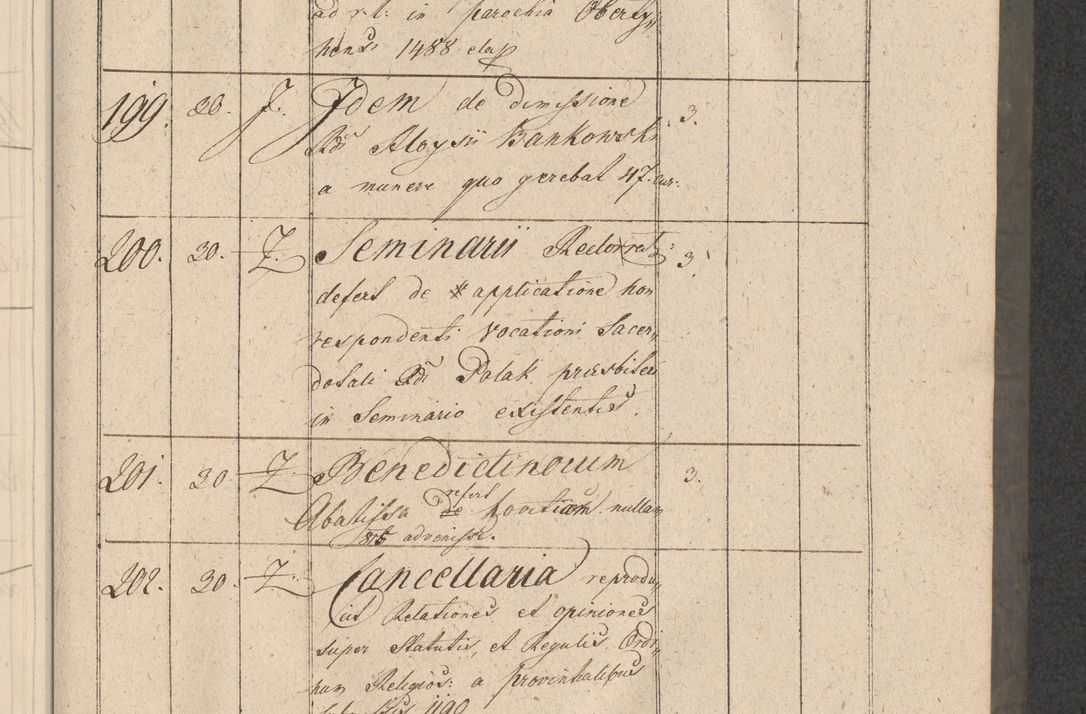 ad r.l: in Parochia Oberty„
hens: 1488 elap
199. 30. J. Idem de dimissione 3.
Rdi Aloysii Bankowski
a munere quo gerebat 47. cur:
200. 30. Z. Seminarii Rectorat: 3.
defert de applicatione hon
respondenti vocationi Sacer„
dotali Rdi Polak praesbiteri
in Seminario existentis.
201. 30 Z. Benedictinarum 3.
refert
Abatissa de Novitiam nullam
1815 advenisse.
202. 30. Z. Cancellaria reprodu„
cit Relationes et opiniones
super Statutis, et Regulis Ordi„
num Religios: a provintialibus
1190